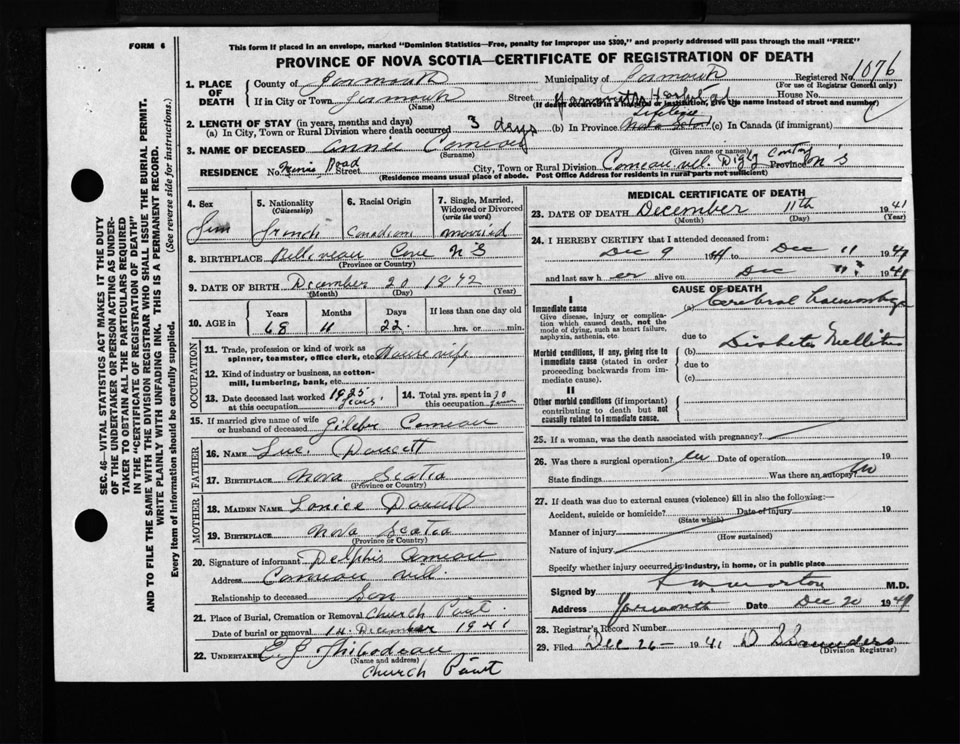 FORM 6
This form if placed in an envelope, marked "Dominion Statistics—Free, penalty for improper use $300," and properly addressed will pass through the mail "FREE"
PROVINCE OF NOVA SCOTIA—CERTIFICATE OF REGISTRATION OF DEATH
1. PLACE OF DEATH County of Yarmouth Municipality of Yarmouth Registered No. 1076
(For use of Registrar General only)
If in City or Town Yarmouth Street Yarmouth Hospital House No.
(Name) (If death occurred in a hospital or institution, give the name instead of street and number)
2. LENGTH OF STAY (in years, months and days)
(a) In City, Town or Rural Division where death occurred 3 days (b) In Province Lifetime (c) In Canada (if immigrant)
3. NAME OF DECEASED Annie Comeau
(Surname) (Given name or names)
RESIDENCE No. Road Street City, Town or Rural Division Comeau vill. Digby County Province N S
(Residence means usual place of abode. Post Office Address for residents in rural parts not sufficient)
4. Sex Fem
5. Nationality (Citizenship) French
6. Racial Origin Canadian
7. Single, Married, Widowed or Divorced (write the word) Married
8. BIRTHPLACE Belliveau Cove N S
(Province or Country)
9. DATE OF BIRTH December 20 1872
(Month) (Day) (Year)
10. AGE in Years 68 Months 11 Days 22 If less than one day old hrs. or min.
OCCUPATION
11. Trade, profession or kind of work as spinner, teamster, office clerk, etc. House wife
12. Kind of industry or business, as cotton-mill, lumbering, bank, etc.
13. Date deceased last worked at this occupation 1925
14. Total yrs. spent in this occupation 30 years
15. If married give name of wife or husband of deceased Comeau
FATHER
16. NAME Luc. Doucett
17. BIRTHPLACE Nova Scotia
(Province or Country)
MOTHER
18. MAIDEN NAME Doucett
19. BIRTHPLACE Nova Scotia
(Province or Country)
20. Signature of informant Delphis Comeau
Address Comeau vill
Relationship to deceased Son
21. Place of Burial, Cremation or Removal Church Point.
Date of burial or removal 14 December 1941
22. UNDERTAKER E J Thibodeau
(Name and address)
Church Point
MEDICAL CERTIFICATE OF DEATH
23. DATE OF DEATH December 11th 1941
(Month) (Day) (Year)
24. I HEREBY CERTIFY that I attended deceased from:
Dec 9 1941 to Dec 11 1941
and last saw h er alive on Dec 11 1941
CAUSE OF DEATH
I
Immediate cause
Give disease, injury or complication which caused death, not the mode of dying, such as heart failure, asphyxia, asthenia, etc.
(a) Cerebral haemorrhage
due to
Morbid conditions, if any, giving rise to immediate cause (stated in order proceeding backwards from immediate cause).
(b) Diabetes Mellitus
due to
(c)
II
Other morbid conditions (if important) contributing to death but not causally related to immediate cause.
25. If a woman, was the death associated with pregnancy?
26. Was there a surgical operation? no Date of operation 19
State findings Was there an autopsy? no
27. If death was due to external causes (violence) fill in also the following:—
Accident, suicide or homicide? Date of injury 19
(State which)
Manner of injury
(How sustained)
Nature of injury
Specify whether injury occurred in industry, in home, or in public place
Signed by Morton M.D.
Address Yarmouth Date Dec 20 1941
28. Registrar's Record Number
29. Filed Dec 26 1941 Saunders
(Division Registrar)
SEC. 46—VITAL STATISTICS ACT MAKES IT THE DUTY OF THE UNDERTAKER OR PERSON ACTING AS UNDERTAKER TO OBTAIN ALL THE PARTICULARS REQUIRED IN THE "CERTIFICATE OF REGISTRATION OF DEATH" AND TO FILE THE SAME WITH THE DIVISION REGISTRAR WHO SHALL ISSUE THE BURIAL PERMIT.
WRITE PLAINLY WITH UNFADING INK. THIS IS A PERMANENT RECORD.
Every item of information should be carefully supplied. (See reverse side for instructions.)